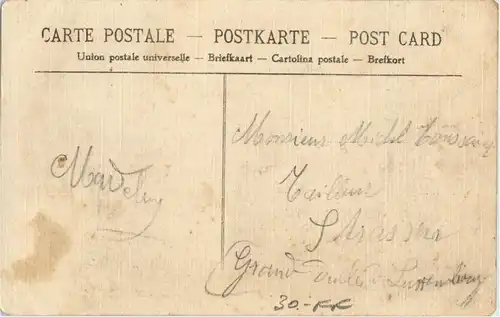 CARTE POSTALE — POSTKARTE — POST CARD
Union postale universelle — Briefkaart — Cartolina postale — Brefkort
Monsieur Michel
Tailleur
Strassen
Grand Luxembourg
30.-